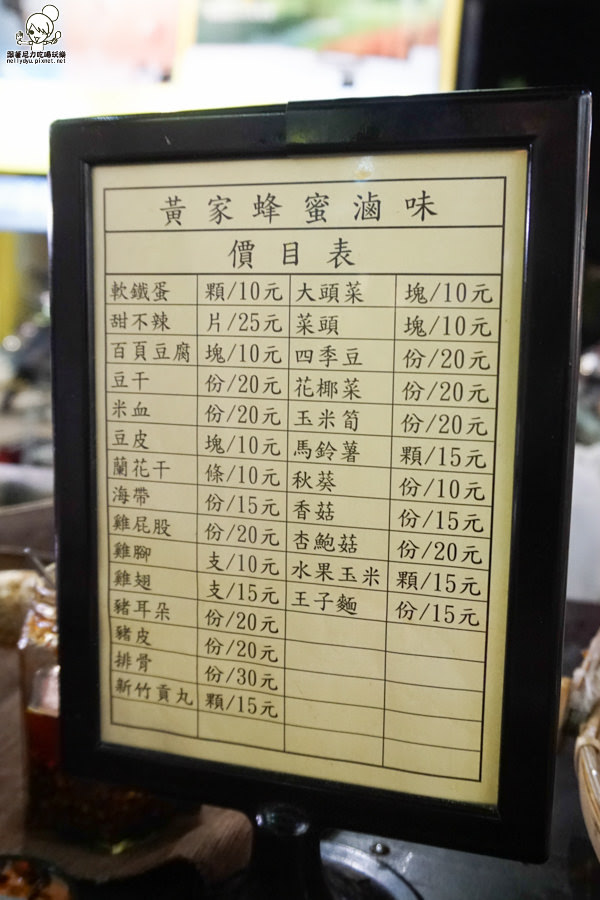 跟著尼力吃喝玩樂
nellydyu.pixnet.net
黃家蜂蜜滷味
價目表
軟鐵蛋 顆/10元 大頭菜 塊/10元
甜不辣 片/25元 菜頭 塊/10元
百頁豆腐 塊/10元 四季豆 份/20元
豆干 份/20元 花椰菜 份/20元
米血 份/20元 玉米筍 份/20元
豆皮 塊/10元 馬鈴薯 顆/15元
蘭花干 條/10元 秋葵 份/10元
海帶 份/15元 香菇 份/15元
雞屁股 份/20元 杏鮑菇 份/20元
雞腳 支/10元 水果玉米 顆/15元
雞翅 支/15元 王子麵 份/15元
豬耳朵 份/20元
豬皮 份/20元
排骨 份/30元
新竹貢丸 顆/15元